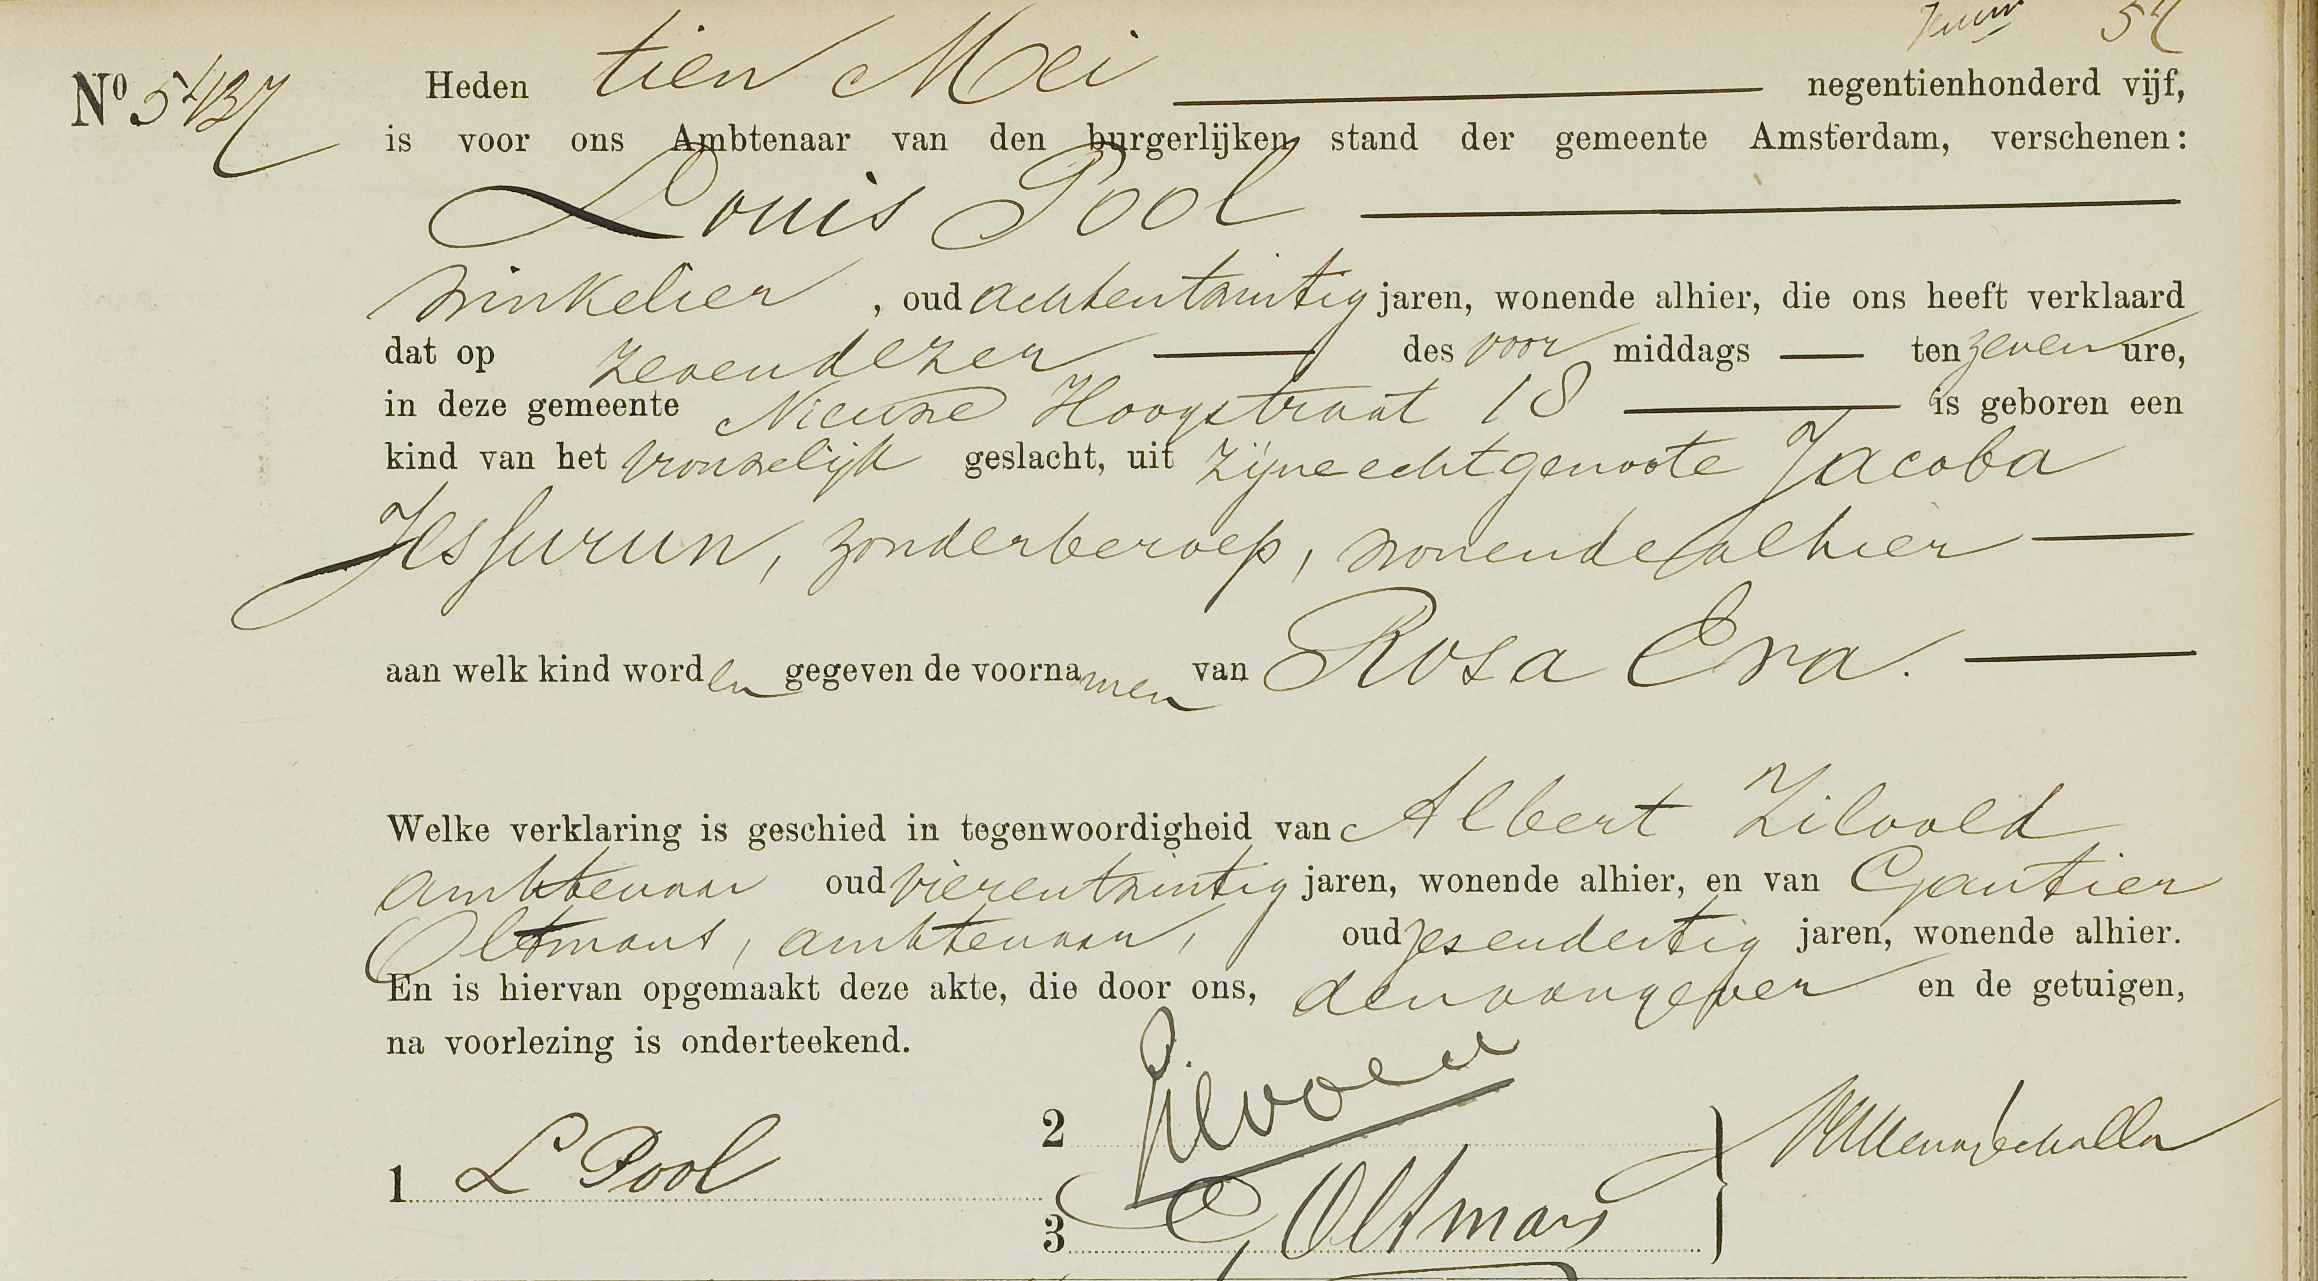 57
Nº 5437 Heden tien Mei negentienhonderd vijf,
is voor ons Ambtenaar van den burgerlijken stand der gemeente Amsterdam, verschenen:
Louis Pool
winkelier, oud achtentwintig jaren, wonende alhier, die ons heeft verklaard
dat op zevendezer des voor middags ten zeven ure,
in deze gemeente Nieuwe Hoogstraat 18 is geboren een
kind van het vrouwelijk geslacht, uit zijne echtgenoote Jacoba
Jessurun, zonder beroep, wonende alhier
aan welk kind worden gegeven de voornamen van Rosa Eva.
Welke verklaring is geschied in tegenwoordigheid van Albert Zilvold
ambtenaar oud vierentwintig jaren, wonende alhier, en van Gautier
Oltmans, ambtenaar, oud zesendertig jaren, wonende alhier.
En is hiervan opgemaakt deze akte, die door ons, den aangever en de getuigen,
na voorlezing is onderteekend.
1 L Pool
2 Zilvold
3 G, Oltmans